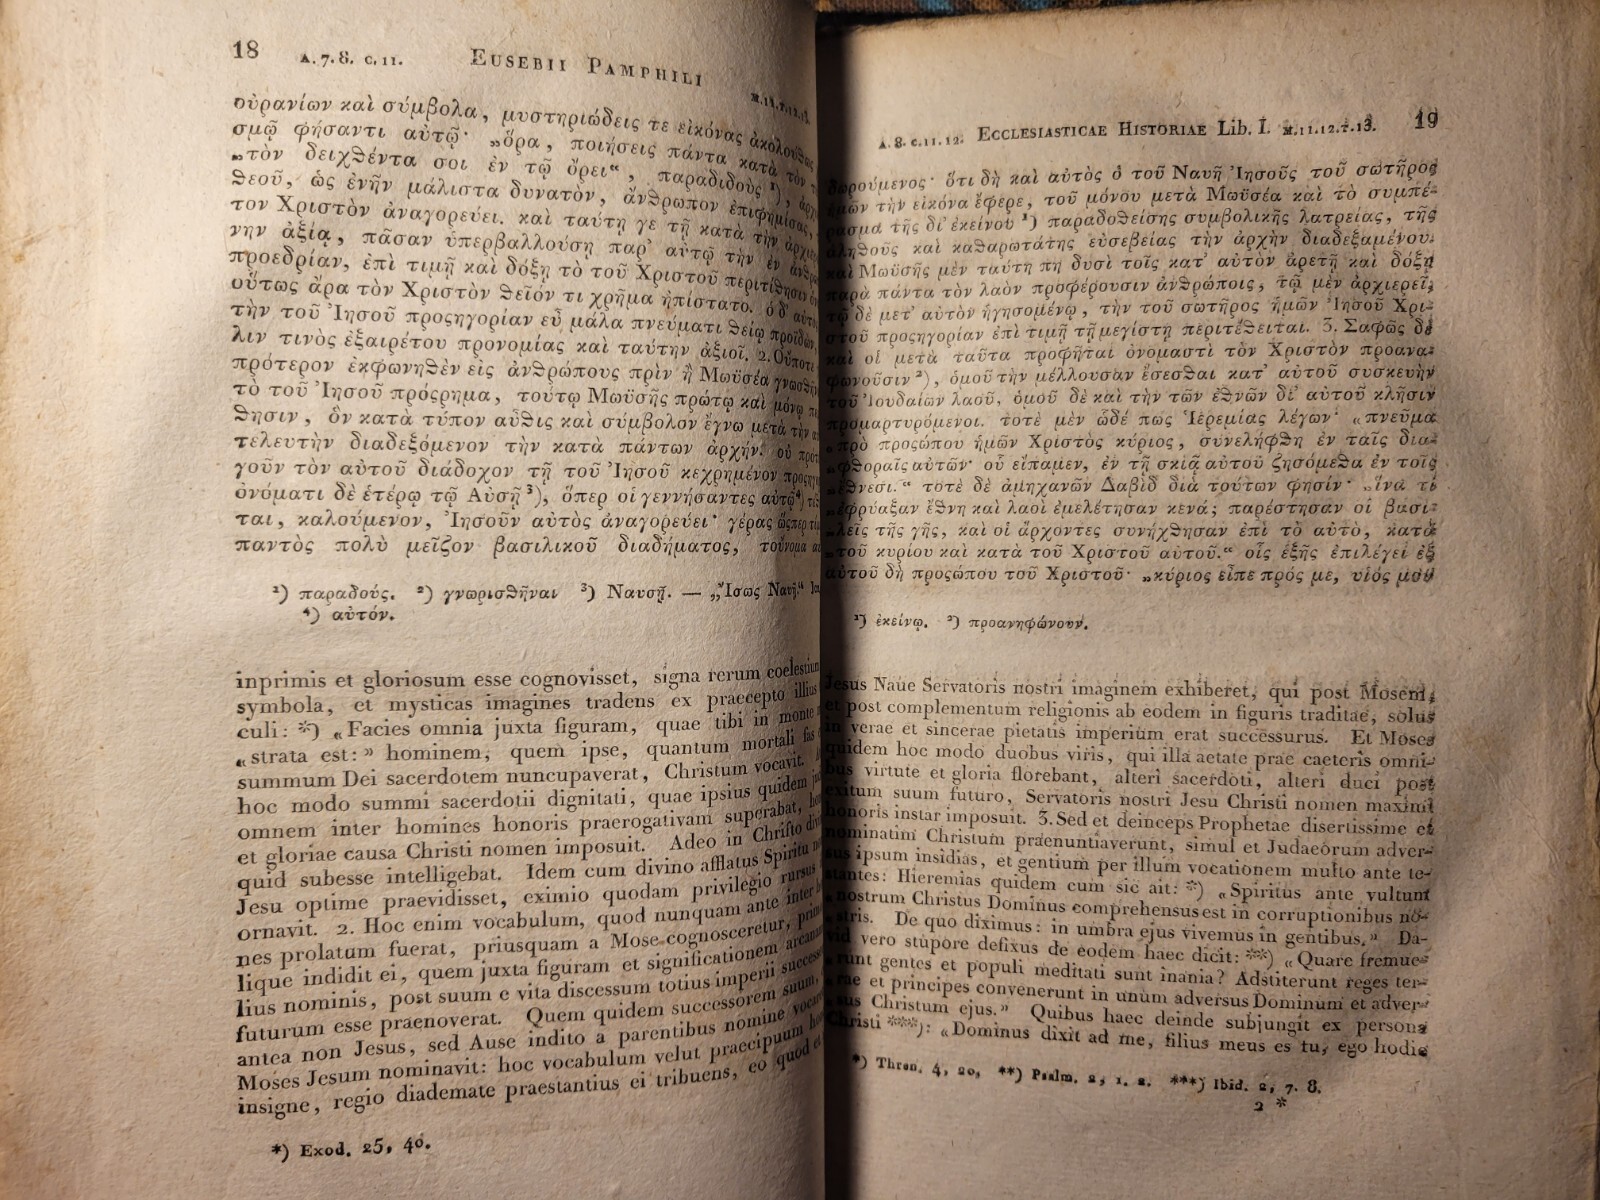 18 A. 7. 8. C. 11. EUSEBII PAMPHILI M. 11. 7. 12. 13.
οὐρανίων καὶ σύμβολα, μυστηριώδεις τε εἰκόνας ἀκολούθως
σμῷ φήσαντι αὐτῷ· „ὅρα, ποιήσεις πάντα κατὰ τὸν
„τὸν δειχθέντα σοι ἐν τῷ ὄρει“, παραδιδοὺς ¹),
θεοῦ, ὡς ἐνῆν μάλιστα δυνατὸν, ἄνθρωπον ἐπιφημίσας,
τον Χριστὸν ἀναγορεύει. καὶ ταύτῃ γε τῇ κατὰ τὴν
νην ἀξίᾳ, πᾶσαν ὑπερβαλλούσῃ παρ᾽ αὐτῷ τὴν ἐν
προεδρίαν, ἐπὶ τιμῇ καὶ δόξῃ τὸ τοῦ Χριστοῦ περιτίθησιν
οὕτως ἄρα τὸν Χριστὸν θεῖόν τι χρῆμα ἠπίστατο. ὁ δ᾽
τὴν τοῦ Ἰησοῦ προςηγορίαν εὖ μάλα πνεύματι θείῳ προϊδὼν,
λιν τινὸς ἐξαιρέτου προνομίας καὶ ταύτην ἀξιοῖ. 2. Οὔποτε
πρότερον ἐκφωνηθὲν εἰς ἀνθρώπους πρὶν ἢ Μωϋσέα
τὸ τοῦ Ἰησοῦ πρόςρημα, τούτῳ Μωϋσῆς πρώτῳ καὶ μόνῳ
θησιν, ὃν κατὰ τύπον αὖθις καὶ σύμβολον ἔγνω μετὰ τὴν
τελευτὴν διαδεξόμενον τὴν κατὰ πάντων ἀρχήν. οὐ
γοῦν τὸν αὐτοῦ διάδοχον τῇ τοῦ Ἰησοῦ κεχρημένον
ὀνόματι δὲ ἑτέρῳ τῷ Αὐσῇ ³), ὅπερ οἱ γεννήσαντες αὐτῷ ⁴)
ται, καλούμενον, Ἰησοῦν αὐτὸς ἀναγορεύει· γέρας ὥςπερ
παντὸς πολὺ μεῖζον βασιλικοῦ διαδήματος, τοὔνομα
¹) παραδούς. ²) γνωρισθῆναι ³) Ναυσῇ. — „Ἴσως Ναυῆ.“
⁴) αὐτόν.
inprimis et gloriosum esse cognovisset, signa rerum coelestium
symbola, et mysticas imagines tradens ex praecepto illius
culi: *) «Facies omnia juxta figuram, quae tibi in monte
«strata est:» hominem, quem ipse, quantum mortali fas
summum Dei sacerdotem nuncupaverat, Christum vocavit.
hoc modo summi sacerdotii dignitati, quae ipsius quidem
omnem inter homines honoris praerogativam superabat,
et gloriae causa Christi nomen imposuit. Adeo in Christo
quid subesse intelligebat. Idem cum divino afflatus Spiritu
Jesu optime praevidisset, eximio quodam privilegio rursus
ornavit. 2. Hoc enim vocabulum, quod nunquam ante inter
nes prolatum fuerat, priusquam a Mose cognosceretur,
lique indidit ei, quem juxta figuram et significationem
lius nominis, post suum e vita discessum totius imperii
futurum esse praenoverat. Quem quidem successorem suum,
antea non Jesus, sed Ause indito a parentibus nomine
Moses Jesum nominavit: hoc vocabulum velut praecipuum
insigne, regio diademate praestantius ei tribuens, eo quod
*) Exod. 25, 40.
A. 8. C. 11. 12. ECCLESIASTICAE HISTORIAE Lib. I. M. 11. 12. 7. 13. 19
δωρούμενος· ὅτι δὴ καὶ αὐτὸς ὁ τοῦ Ναυῆ Ἰησοῦς τοῦ σωτῆρος
ἡμῶν τὴν εἰκόνα ἔφερε, τοῦ μόνου μετὰ Μωϋσέα καὶ τὸ συμπέ-
ρασμα τῆς δι᾽ ἐκείνου ¹) παραδοθείσης συμβολικῆς λατρείας, τῆς
ἀληθοῦς καὶ καθαρωτάτης εὐσεβείας τὴν ἀρχὴν διαδεξαμένου.
καὶ Μωϋσῆς μὲν ταύτῃ πη δυσὶ τοῖς κατ᾽ αὐτὸν ἀρετῇ καὶ δόξῃ
παρὰ πάντα τὸν λαὸν προφέρουσιν ἀνθρώποις, τῷ μὲν ἀρχιερεῖ,
τῷ δὲ μετ᾽ αὐτὸν ἡγησομένῳ, τὴν τοῦ σωτῆρος ἡμῶν Ἰησοῦ Χρι-
στοῦ προςηγορίαν ἐπὶ τιμῇ τῇ μεγίστῃ περιτέθειται. 3. Σαφῶς δὲ
καὶ οἱ μετὰ ταῦτα προφῆται ὀνομαστὶ τὸν Χριστὸν προανα-
φωνοῦσιν ²), ὁμοῦ τὴν μέλλουσαν ἔσεσθαι κατ᾽ αὐτοῦ συσκευὴν
τοῦ Ἰουδαίων λαοῦ, ὁμοῦ δὲ καὶ τὴν τῶν ἐθνῶν δι᾽ αὐτοῦ κλῆσιν
προμαρτυρόμενοι. τοτὲ μὲν ὧδέ πως Ἱερεμίας λέγων· «πνεῦμα
„πρὸ προςώπου ἡμῶν Χριστὸς κύριος, συνελήφθη ἐν ταῖς δια-
„φθοραῖς αὐτῶν· οὗ εἴπαμεν, ἐν τῇ σκιᾷ αὐτοῦ ζησόμεθα ἐν τοῖς
„ἔθνεσι.“ τοτὲ δὲ ἀμηχανῶν Δαβὶδ διὰ τούτων φησίν· „ἵνα τί
„ἐφρύαξαν ἔθνη καὶ λαοὶ ἐμελέτησαν κενά; παρέστησαν οἱ βασι-
„λεῖς τῆς γῆς, καὶ οἱ ἄρχοντες συνήχθησαν ἐπὶ τὸ αὐτὸ, κατὰ
„τοῦ κυρίου καὶ κατὰ τοῦ Χριστοῦ αὐτοῦ.“ οἷς ἑξῆς ἐπιλέγει ἐξ
αὐτοῦ δὴ προςώπου τοῦ Χριστοῦ· „κύριος εἶπε πρός με, υἱός μου
¹) ἐκείνῳ. ²) προανηφώνουν.
Jesus Naue Servatoris nostri imaginem exhiberet, qui post Mosem,
et post complementum religionis ab eodem in figuris traditae, solus
in verae et sincerae pietatis imperium erat successurus. Et Moses
quidem hoc modo duobus viris, qui illa aetate prae caeteris omni-
bus virtute et gloria florebant, alteri sacerdoti, alteri duci post
exitum suum futuro, Servatoris nostri Jesu Christi nomen maximi
honoris instar imposuit. 3. Sed et deinceps Prophetae disertissime et
nominatim Christum praenuntiaverunt, simul et Judaeorum adver-
sus ipsum insidias, et gentium per illum vocationem multo ante te-
stantes: Hieremias quidem cum sic ait: *) «Spiritus ante vultum
«nostrum Christus Dominus comprehensus est in corruptionibus no-
«stris. De quo diximus: in umbra ejus vivemus in gentibus.» Da-
vid vero stupore defixus de eodem haec dicit: **) «Quare fremue-
«runt gentes et populi meditati sunt inania? Adstiterunt reges ter-
«rae et principes convenerunt in unum adversus Dominum et adver-
«sus Christum ejus.» Quibus haec deinde subjungit ex persona
Christi ***): «Dominus dixit ad me, filius meus es tu, ego hodie
*) Thren. 4, 20, **) Psalm. 2, 1. 2. ***) Ibid. 2, 7. 8.
2 *